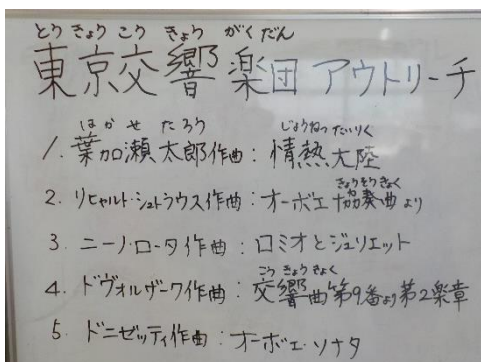 とうきょうこうきょうがくだん
東京交響楽団 アウトリーチ
はかせたろう じょうねつたいりく
1. 葉加瀬太郎作曲：情熱大陸
きょうそうきょく
2. リヒャルト・シュトラウス作曲：オーボエ協奏曲より
3. ニーノ・ロータ作曲：ロミオとジュリエット
こうきょうきょく
4. ドヴォルザーク作曲：交響曲第9番より第2楽章
5. ドニゼッティ作曲：オーボエ・ソナタ